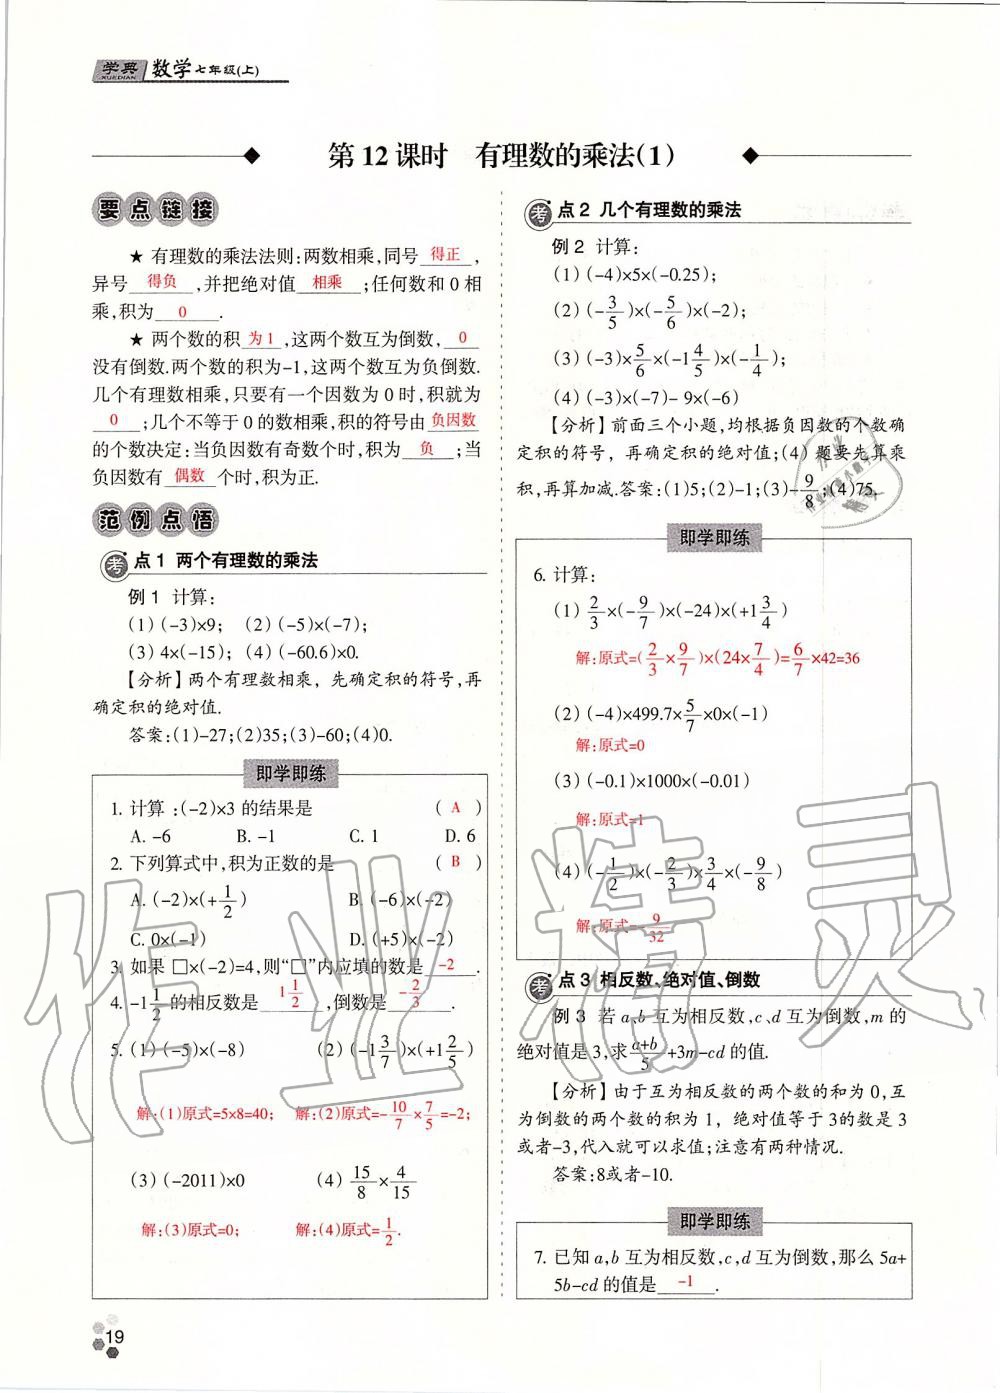 学典 数学 七年级(上)
XUEDIAN
第12课时 有理数的乘法(1)
要点链接
★ 有理数的乘法法则:两数相乘,同号 得正 ,
异号 得负 ,并把绝对值 相乘 ;任何数和0相
乘,积为 0 .
★ 两个数的积 为1 ,这两个数互为倒数, 0
没有倒数.两个数的积为-1,这两个数互为负倒数.
几个有理数相乘,只要有一个因数为0时,积就为
0 ;几个不等于0的数相乘,积的符号由 负因数
的个数决定:当负因数有奇数个时,积为 负 ;当
负因数有 偶数 个时,积为正.
范例点悟
考点1 两个有理数的乘法
例1 计算:
(1)(-3)×9; (2)(-5)×(-7);
(3)4×(-15); (4)(-60.6)×0.
【分析】两个有理数相乘，先确定积的符号,再
确定积的绝对值.
答案:(1)-27;(2)35;(3)-60;(4)0.
即学即练
1. 计算:(-2)×3的结果是 ( A )
A. -6 B. -1 C. 1 D. 6
2. 下列算式中,积为正数的是 ( B )
A. (-2)×(+1/2) B. (-6)×(-2)
C. 0×(-1) D. (+5)×(-2)
3. 如果 □×(-2)=4,则“□”内应填的数是 -2 .
4. -1 1/2 的相反数是 1 1/2 ,倒数是 -2/3 .
5. (1)(-5)×(-8) (2)(-1 3/7)×(+1 2/5)
解:(1)原式=5×8=40; 解:(2)原式=-10/7×7/5=-2;
(3)(-2011)×0 (4) 15/8×4/15
解:(3)原式=0; 解:(4)原式=1/2.
考点2 几个有理数的乘法
例2 计算:
(1)(-4)×5×(-0.25);
(2)(-3/5)×(-5/6)×(-2);
(3)(-3)×5/6×(-1 4/5)×(-1/4);
(4)(-3)×(-7)-9×(-6)
【分析】前面三个小题,均根据负因数的个数确
定积的符号，再确定积的绝对值;(4)题要先算乘
积,再算加减.答案:(1)5;(2)-1;(3)-9/8;(4)75.
即学即练
6. 计算:
(1) 2/3×(-9/7)×(-24)×(+1 3/4)
解:原式=(2/3×9/7)×(24×7/4)=6/7×42=36
(2)(-4)×499.7×5/7×0×(-1)
解:原式=0
(3)(-0.1)×1000×(-0.01)
解:原式=1
(4)(-1/2)×(-2/3)×3/4×(-9/8)
解:原式=-9/32
考点3 相反数、绝对值、倒数
例3 若a、b互为相反数,c、d互为倒数,m的
绝对值是3,求 (a+b)/5 +3m-cd的值.
【分析】由于互为相反数的两个数的和为0,互
为倒数的两个数的积为1，绝对值等于3的数是3
或者-3,代入就可以求值;注意有两种情况.
答案:8或者-10.
即学即练
7. 已知a,b互为相反数,c,d互为倒数,那么5a+
5b-cd的值是 -1 .
19
作业精灵